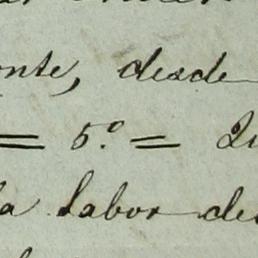 onte, desde
= 5.º = Qu
la labor de